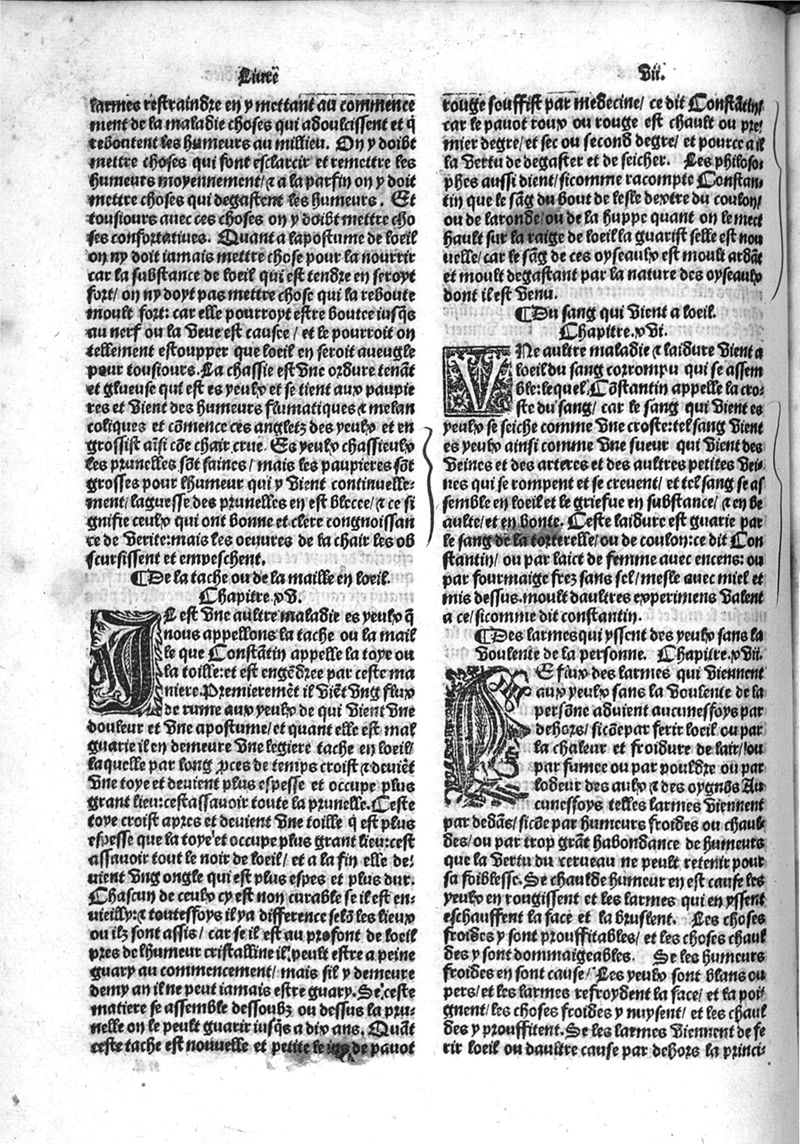 Liure
Vii.
larmes restraindre en y mettant au commence
ment de la maladie choses qui adoulcissent et q̃
reboutent les humeurs au millieu. On y doibt
mettre choses qui font esclarcir et remettre les
humeurs moyennement/ ⁊ a la parfin on y doit
mettre choses qui degastent les humeurs. Et
tousiours auec ces choses on y doibt mettre cho
ses confortatiues. Quant a lapostume de loeil
on ny doit iamais mettre chose pour la nourrir
car la substance de loeil qui est tendre en seroyt
fort/ on ny doyt pas mettre chose qui la reboute
moult fort: car elle pourroyt estre boutee iusq̃s
au nerf ou la veue est causee/ et le pourroit on
tellement estoupper que loeil en seroit aueugle
pour tousiours. La chassie est vne ordure tenãt
et glueuse qui est es yeulx et se tient aux paupie
res et vient des humeurs flumatiques ⁊ melan
coliques et cõmence ces angletz des yeulx et en
grossist aĩsi cõe chair crue. Es yeulx chassieulx
les prunelles sõt saines/ mais les paupieres sõt
grosses pour lhumeur qui y vient continuelle-
ment/ laguesse des prunelles en est blecee/ ⁊ ce si
gnifie ceulx qui ont bonne et clere congnoissan
ce de verite: mais les oeuures de la chair les ob
scursissent et empeschent.
¶ De la tache ou de la maille en loeil.
Chapitre. xv.
IL est vne aultre maladie es yeulx q̃
nous appellons la tache ou la mail
le que Constãtin appelle la toye ou
la toille: et est engẽdree par ceste ma
niere. Premieremẽt il viẽt vng flux
de rume aux yeulx de qui vient vne
douleur et vne apostume/ et quant elle est mal
guarie il en demeure vne legiere tache en loeil/
laquelle par long ꝓces de temps croist ⁊ deuiẽt
vne toye et deuient plus espesse et occupe plus
grant lieu: cest assauoir toute la prunelle. Ceste
toye croist apres et deuient vne toille q̃ est plus
espesse que la toye et occupe plus grant lieu: cest
assauoir tout le noir de loeil/ et a la fin elle de-
uient vng ongle qui est plus espes et plus dur.
Chascun de ceulx cy est non curable se il est en-
uieilly: ⁊ toutessoys il ya difference selõ les lieux
ou ilz sont assis/ car se il est au profont de loeil
pres de lhumeur cristalline il peult estre a peine
guary au commencement/ mais sil y demeure
demy an il ne peut iamais estre guary. Se ceste
matiere se assemble dessoubz ou dessus la pru-
nelle on le peult guarir iusq̃s a dix ans. Quãt
ceste tache est nouuelle et petite le ius de pauot
rouge souffist par medecine/ ce dit Constãtin/
car le pauot roux ou rouge est chault ou pre-
mier degre/ et sec ou second degre/ et pource a il
la vertu de degaster et de seicher. Les philoso-
phes aussi dient/ sicomme racompte Constan-
tin que le sãg du bout de lesle dextre du coulon/
ou de laronde/ ou de la huppe quant on le mect
hault sur la raige de loeil la guarist selle est nou
uelle/ car le sãg de ces oyseaulx est moult ardãt
et moult degastant par la nature des oyseaulx
dont il est venu.
¶ Du sang qui vient a loeil.
Chapitre. xvi.
VNe aultre maladie ⁊ laidure vient a
loeil du sang corrompu qui se assem
ble: lequel Cõstantin appelle la cro-
ste du sang/ car le sang qui vient es
yeulx se seiche comme vne croste: tel sang vient
es yeulx ainsi comme vne sueur qui vient des
veines et des arteres et des aultres petites vei-
nes qui se rompent et se creuent/ et tel sang se as
semble en loeil et le griefue en substance/ ⁊ en be
aulte/ et en bonte. Ceste laidure est guarie par
le sang de la torterelle/ ou de coulon: ce dit Con
stantin/ ou par laict de femme auec encens: ou
par fourmaige frez sans sel/ mesle auec miel et
mis dessus. moult daultres experimens valent
a ce/ sicomme dit constantin.
¶ Des larmes qui yssent des yeulx sans la
voulente de la personne. Chapitre. xvii.
LE flux des larmes qui viennent
aux yeulx sans la voulente de la
persõne aduient aucunessoys par
dehors/ sicõe par ferir loeil ou par
la chaleur et froidure de lair/ ou
par fumee ou par pouldre ou par
lodeur des aulx ⁊ des oygnõs Au
cunessoys telles larmes viennent
par dedãs/ sicõe par humeurs froides ou chaul
des/ ou par trop grãt habondance de humeurs
que la vertu du cerueau ne peult retenir pour
sa foiblesse. Se chaulde humeur en est cause les
yeulx en rougissent et les larmes qui en yssent
eschauffent la face et la bruslent. Les choses
froides y sont prouffitables/ et les choses chaul
des y sont dommaigeables. Se les humeurs
froides en sont cause/ Les yeulx sont blans ou
pers/ et les larmes refroydent la face/ et la poi-
gnent/ les choses froides y nuysent/ et les chaul
des y prouffitent. Se les larmes viennent de fe
rir loeil ou daultre cause par dehors la princi-